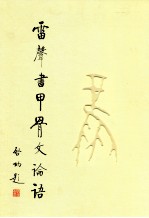 雷聲書甲骨文論語
啟功題